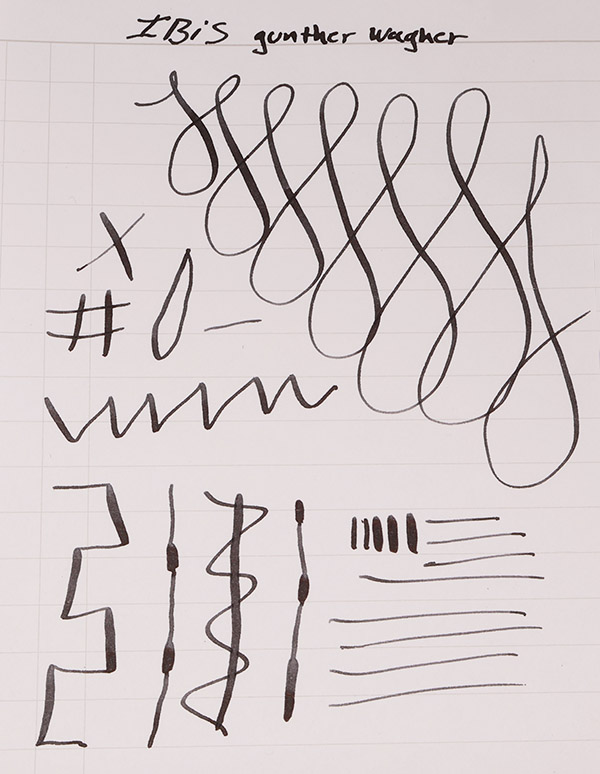 IBiS gunther wagner
X
# 0 -